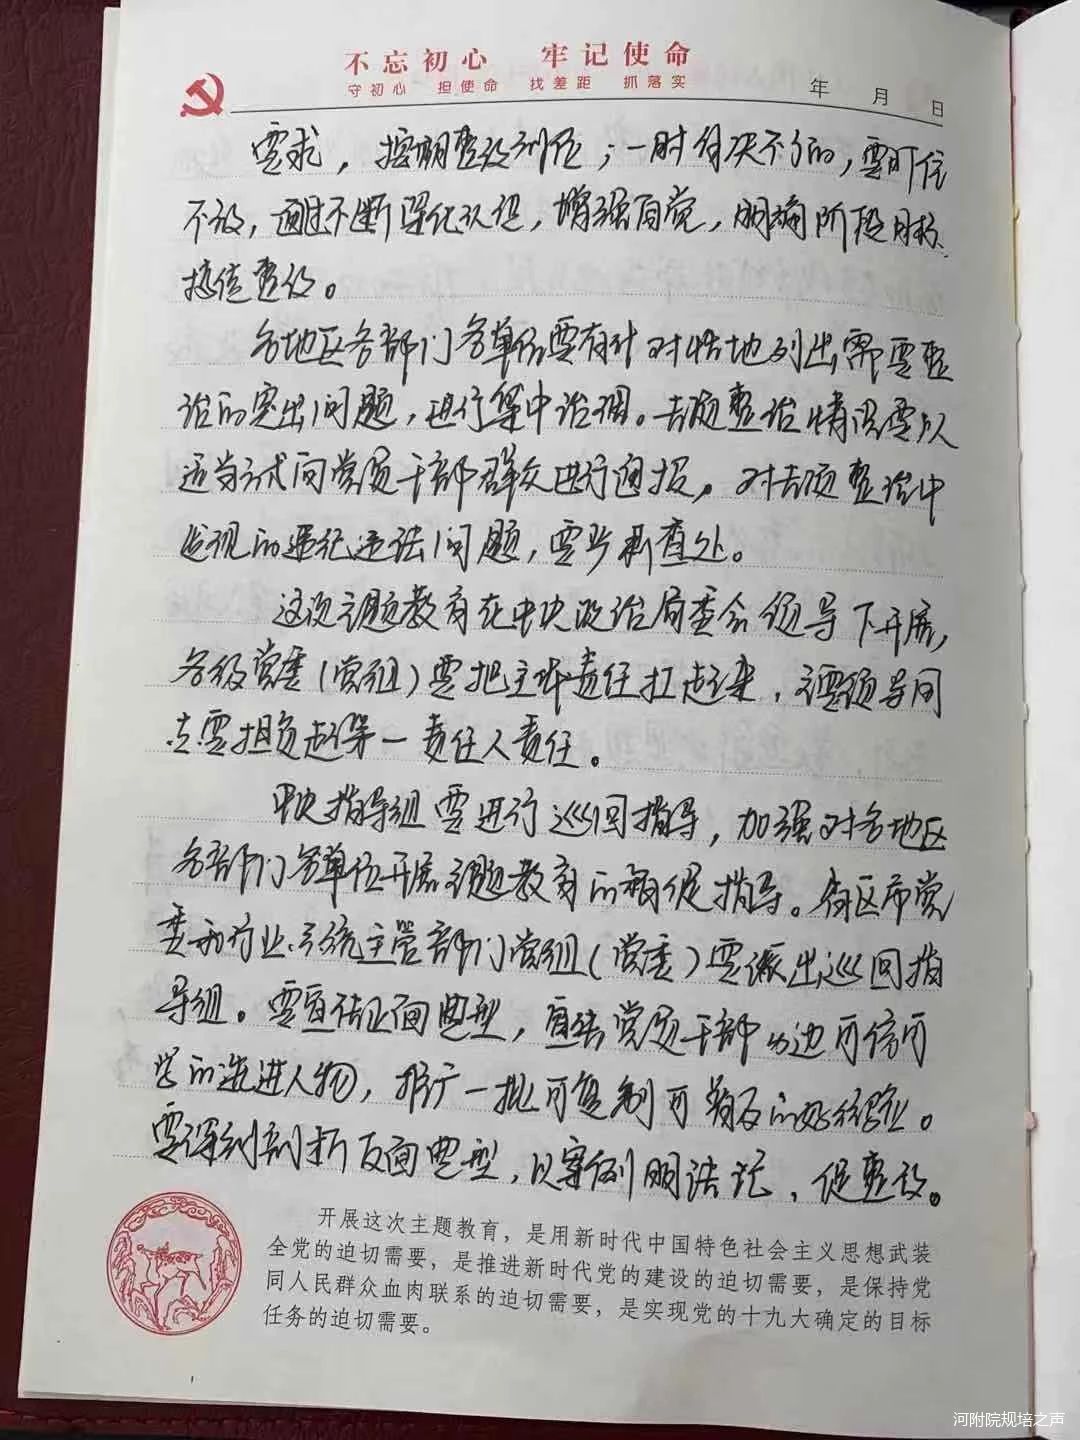 不忘初心 牢记使命
守初心 担使命 找差距 抓落实
年 月 日
要求，按期整改到位；一时解决不了的，要盯住
不放，通过不断深化认识，增强自觉，明确阶段目标、
持续整改。
各地区各部门各单位要有针对性地列出需要整
治的突出问题，进行集中治理。专项整治情况要以
适当方式向党员干部群众进行通报。对专项整治中
发现的违纪违法问题，要严肃查处。
这次主题教育在中央政治局委会领导下开展，
各级党委（党组）要把主体责任扛起来，主要领导同
志要担负起第一责任人责任。
中央指导组要进行巡回指导，加强对各地区
各部门各单位开展主题教育的督促指导。省区市党
委和行业系统主管部门党组（党委）要派出巡回指
导组。要宣传正面典型，宣传党员干部身边可信可
学的先进人物，推广一批可复制可普及的好经验。
要深刻剖析反面典型，以案例明法纪、促整改。
开展这次主题教育，是用新时代中国特色社会主义思想武装
全党的迫切需要，是推进新时代党的建设的迫切需要，是保持党
同人民群众血肉联系的迫切需要，是实现党的十九大确定的目标
任务的迫切需要。
河附院规培之声